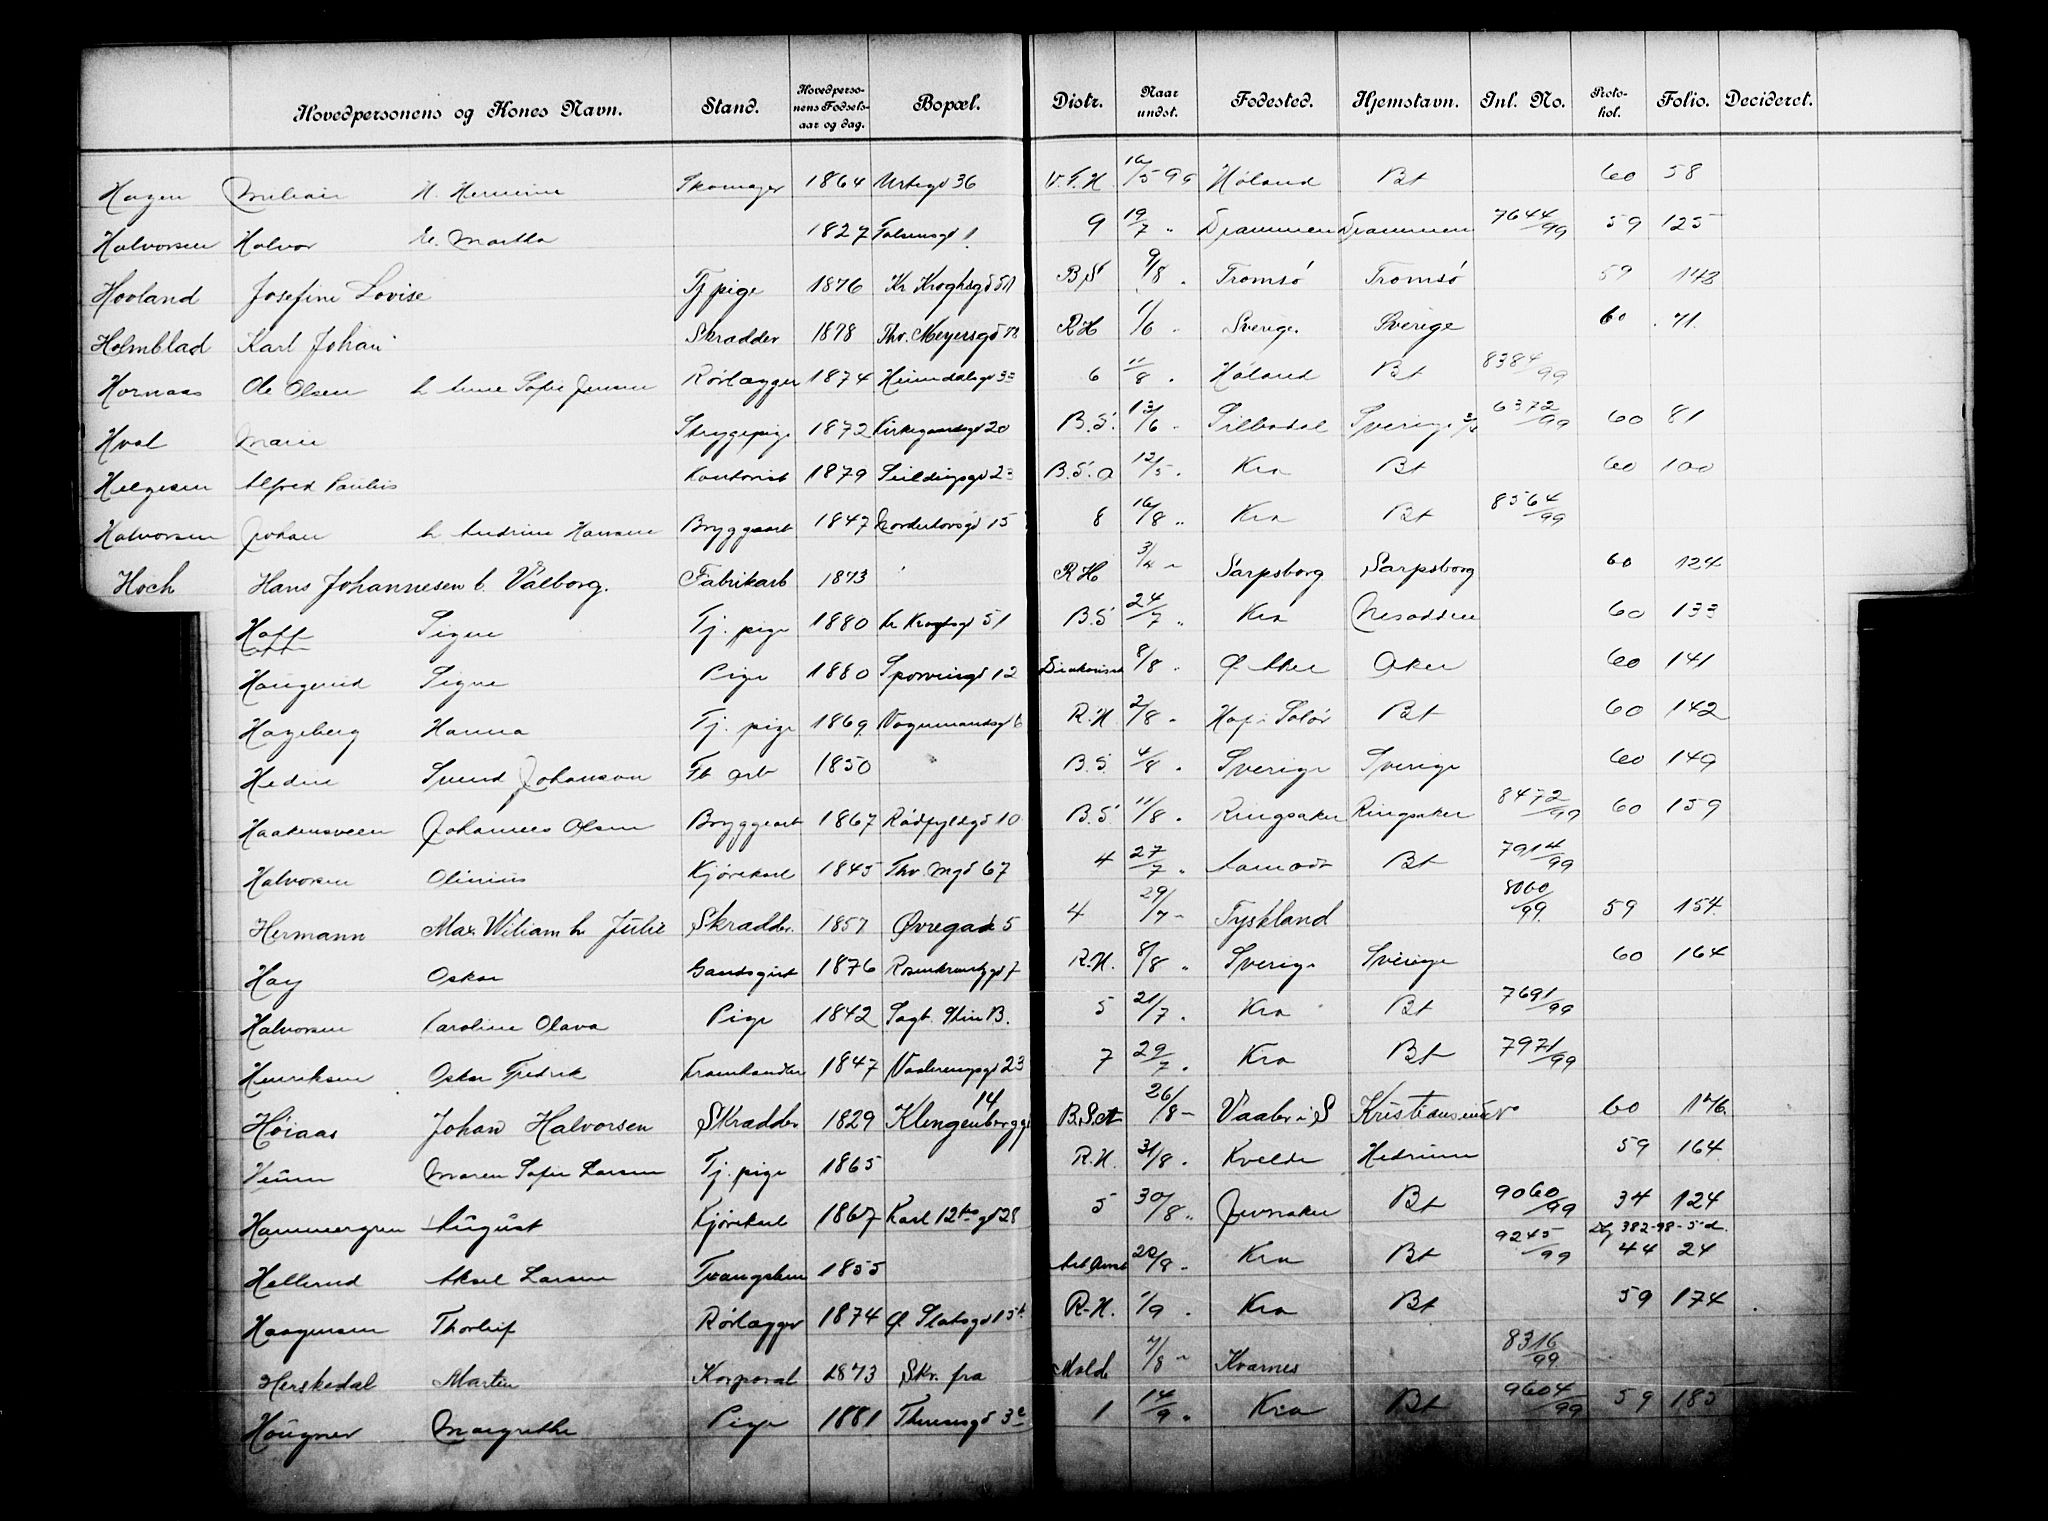 Hovedpersonens og Kones Navn. Stand. Hovedperso-nens Fødsels-aar og dag. Bopæl. Distr. Naar undst. Fødested. Hjemstavn. Inl. No. Proto-kol. Folio. Decideret.
Hagen H. Hermine Skomager 1864 Urtegd 36 V.F.H. 16/5 99 Høland Bt 60 58
Halvorsen Halvor H. Martha 1827 1 9 19/7 " Drammen Drammen 7644/99 59 125
Hovland Josefine Lovise Tj pige 1876 Kr Kroghsgd 51 B.S 9/8 " Tromsø Tromsø 59 143
Holmblad Karl Johan Skrædder 1878 Thv. Meyersgd 78 R.H 1/6 " Sverige. Sverige 60 71.
Hornaas Ole Olsen h Anne Sofie Jensen Rørlægger 1874 Heimdalsgd 33 6 11/8 " Høland Bt 8384/99
Hval Marie Strygepige 1872 Kirkegaardsgd 20 B.S. 13/6 " Silbodal Sverige 6372/99 60 81
Helgesen Alfred Paulus Kontorist 1879 Seildugsgd 23 B.S.a 12/5 " Kra Bt 60 100
Halvorsen Johan h Andrine Hansen Bryggearb 1847 Norderhovsgd 15 8 16/8 " Kra Bt 8564/99
Hoch Hans Johannesen h. Valborg. Fabrikarb 1873 R.H Sarpsborg Sarpsborg 60 124
Hoff Signe Tj. pige 1880 Kr Kroghsgd 51 B.S 24/7 " Kra Nesodden 60 133
Haugerud Signe Pige 1880 Sporveisgd 12 Diakonisseh 8/8 " Ø. Aker Aker 60 141
Hageberg Hanna Tj. pige 1869 Vognmandsgd 6 R.H. 2/8 " Hof i Solør Bt 60 142
Hedin Svend Johanson Fb arb 1850 B.S. 4/8 " Sverige Sverige 60 149
Haakensveen Johannes Olsen Bryggearb 1867 Rødfyldsgd 10 B.S 11/8 " Ringsaker Ringsaker 8472/99 60 159
Halvorsen Olinius Kjørekarl 1845 Thv. Mgd 67 4 27/7 " Aamodt Bt 7914/99
Hermann Max Wiliam h Julie Skrædder. 1857 Øvregade 5 4 29/7 " Tyskland 8060/99 59 154.
Hay Oskar 1876 Rosenkrantzgd 7 R.H. 8/8 " Sverige Sverige 60 164
Halvorsen Karoline Olava Pige 1842 Sagt. B. 5 21/7 " Kra Bt 7691/99
Henriksen Oskar Fredrik Kramhandler 1847 Vaalerengsgd 23 7 29/7 " Kra Bt 7971/99
Høiaas Johan Halvorsen Skrædder 1829 Klengenberggd 14 B.S.A 26/8 " Vaaler i S Kristians 60 176
Veum Maren Sofie Larsen Tj. pige 1865 R.H. 31/8 " Kvelde Hedrum 59 164
Hammergren August Kjørekarl 1867 Karl 12tes gd 28 5 30/8 " Jevnaker Bt 9060/99 34 124
Hellerud Aksel Larsen Tvangslem 1855 20/8 " Kra Bt 9245/99 382-98-5 d. 44 24
Haagensen Thorleif Rørlægger 1874 Ø. Slotsgd 15b R.H. 1/9 " Kra Bt 59 174
Herskedal Martin Korporal 1873 Skr. fra Molde 7/8 " Kvarnes 8316/99
Haugner Margrethe Pige 1881 Theresesgd 3c 1 14/9 " Kra Bt 9604/99 59 183